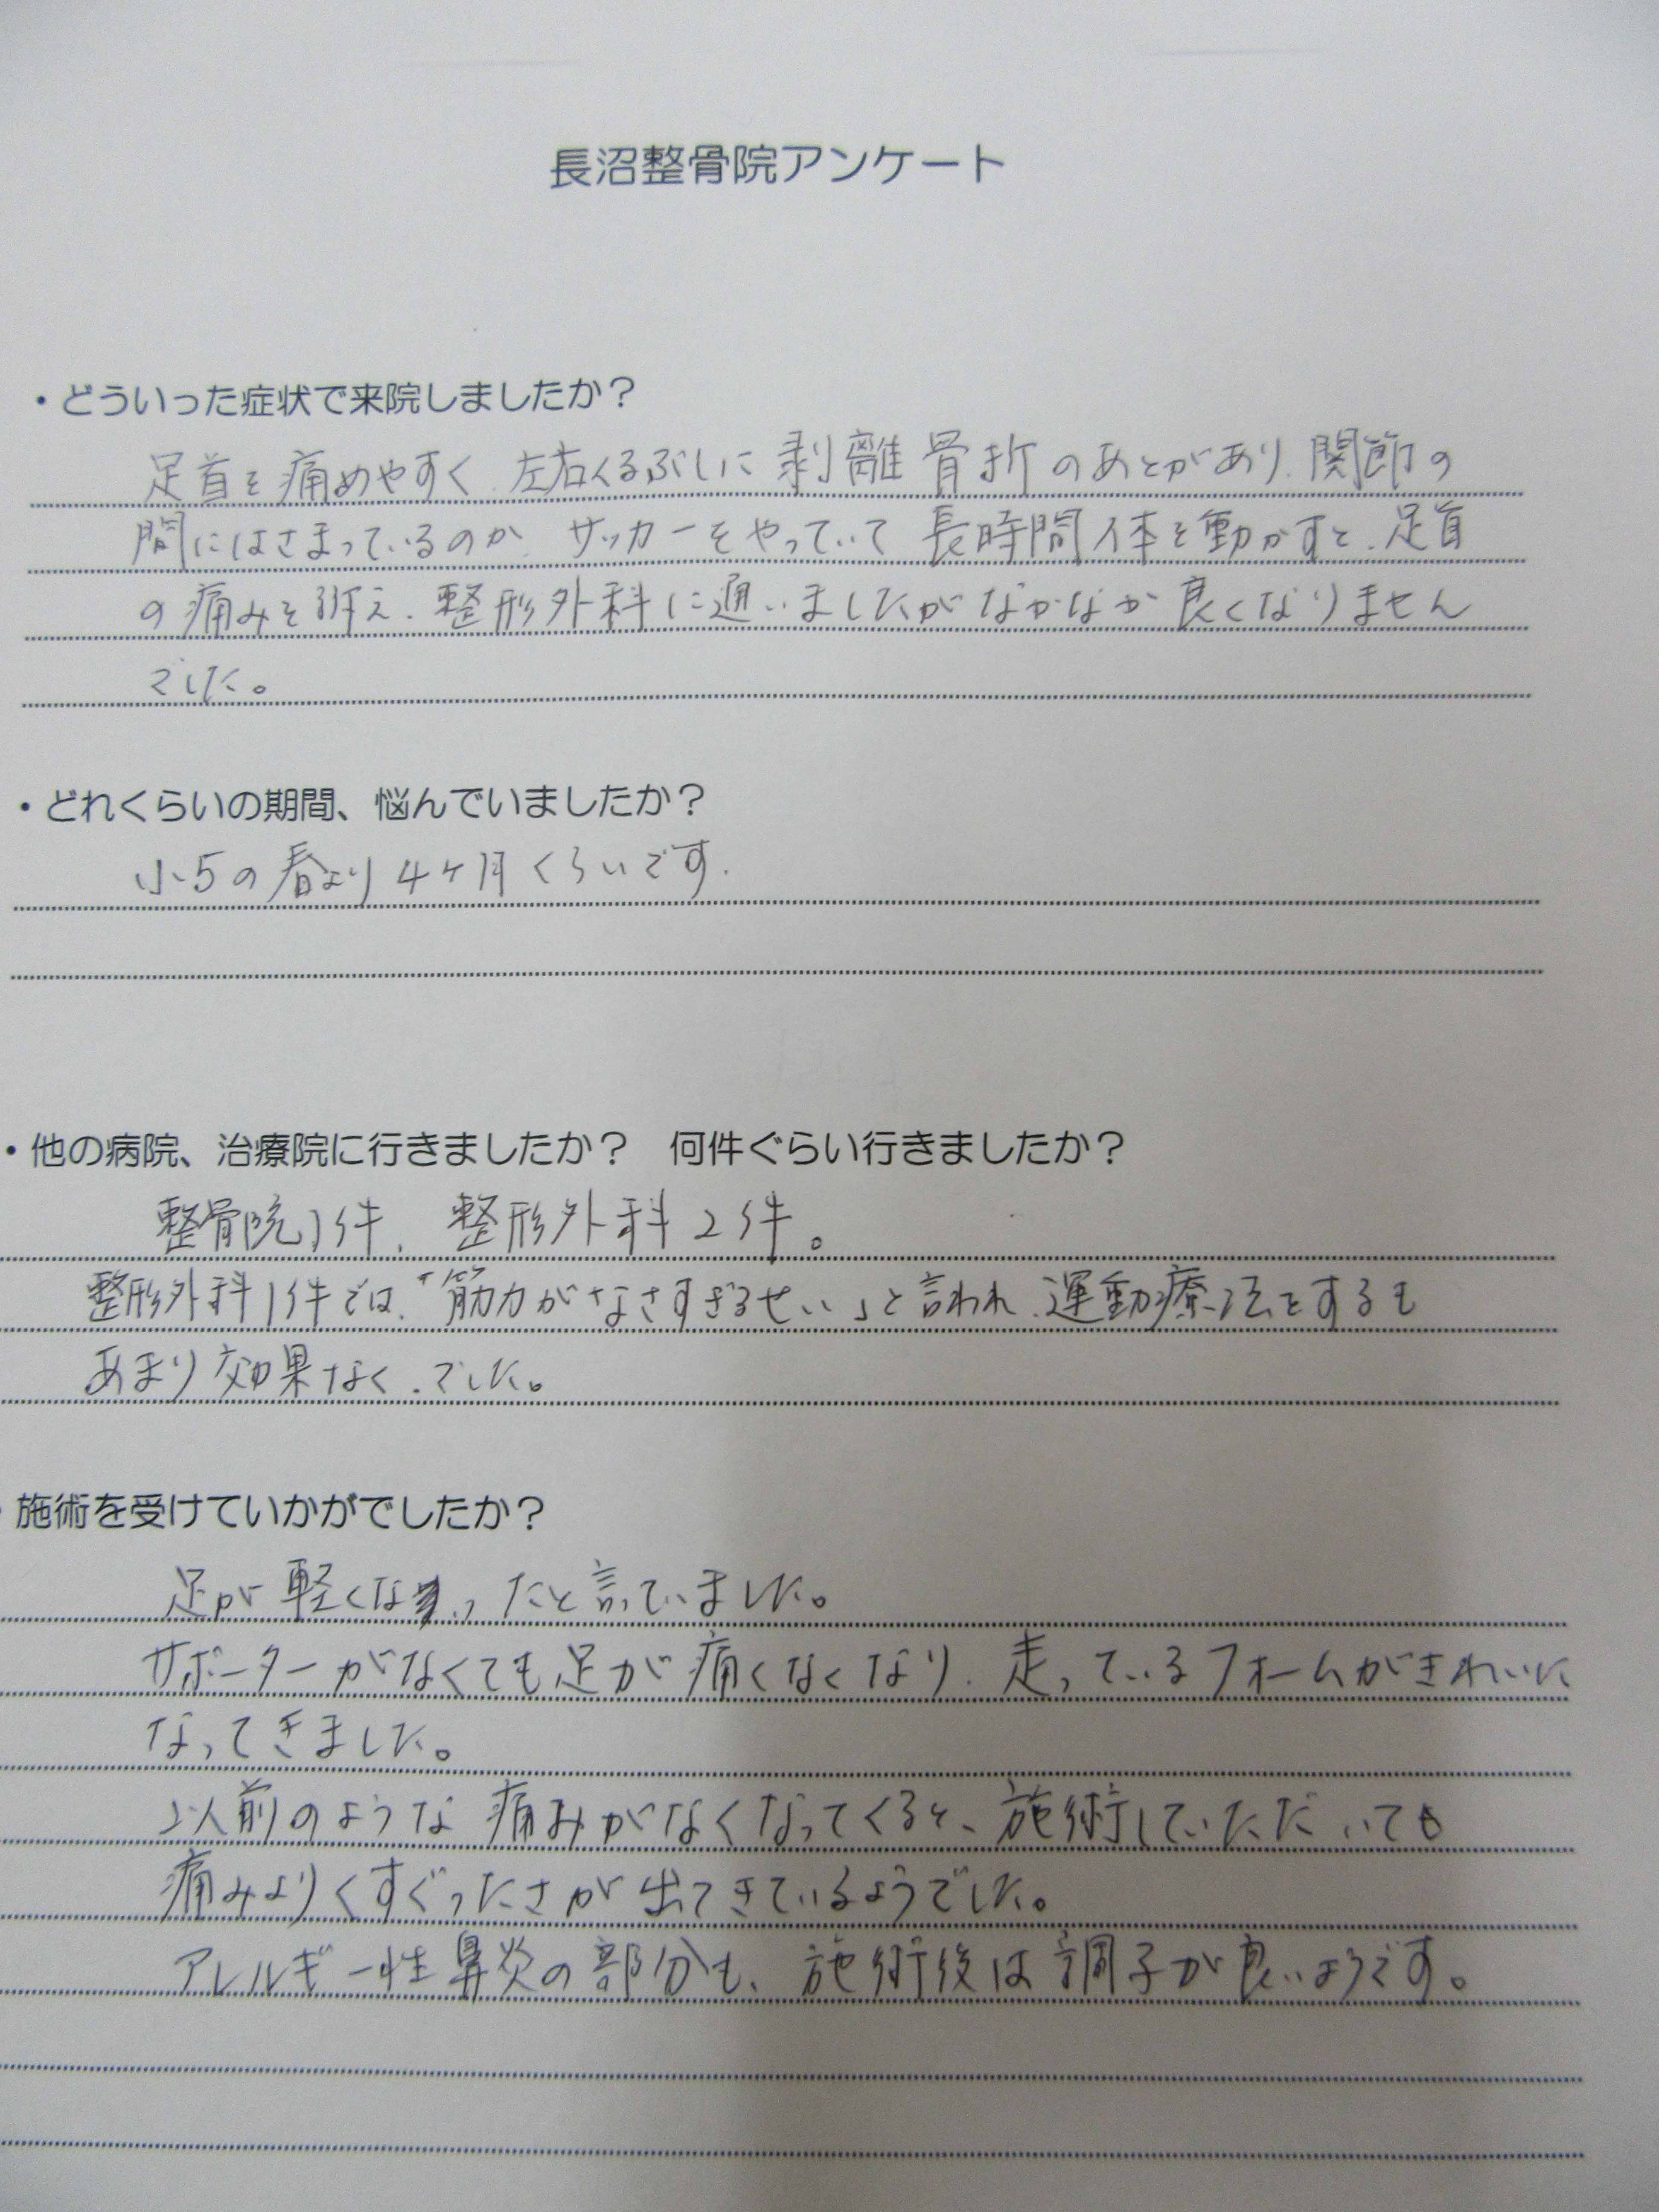 長沼整骨院アンケート
・どういった症状で来院しましたか？
足首を痛めやすく、左右くるぶしに剥離骨折のあとがあり、関節の
間にはさまっているのか、サッカーをやっていて長時間体を動かすと、足首
の痛みを訴え、整形外科に通いましたがなかなか良くなりません
でした。
・どれくらいの期間、悩んでいましたか？
小5の春より4ヶ月くらいです。
・他の病院、治療院に行きましたか？　何件ぐらい行きましたか？
整骨院1件、整形外科2件。
整形外科1件では、「筋力がなさすぎるせい」と言われ、運動療法をするも
あまり効果なく、でした。
・施術を受けていかがでしたか？
足が軽くなったと言っていました。
サポーターがなくても足が痛くなくなり、走っているフォームがきれいに
なってきました。
以前のような痛みがなくなってくると、施術していただいても
痛みよりくすぐったさが出てきているようでした。
アレルギー性鼻炎の部分も、施術後は調子が良いようです。